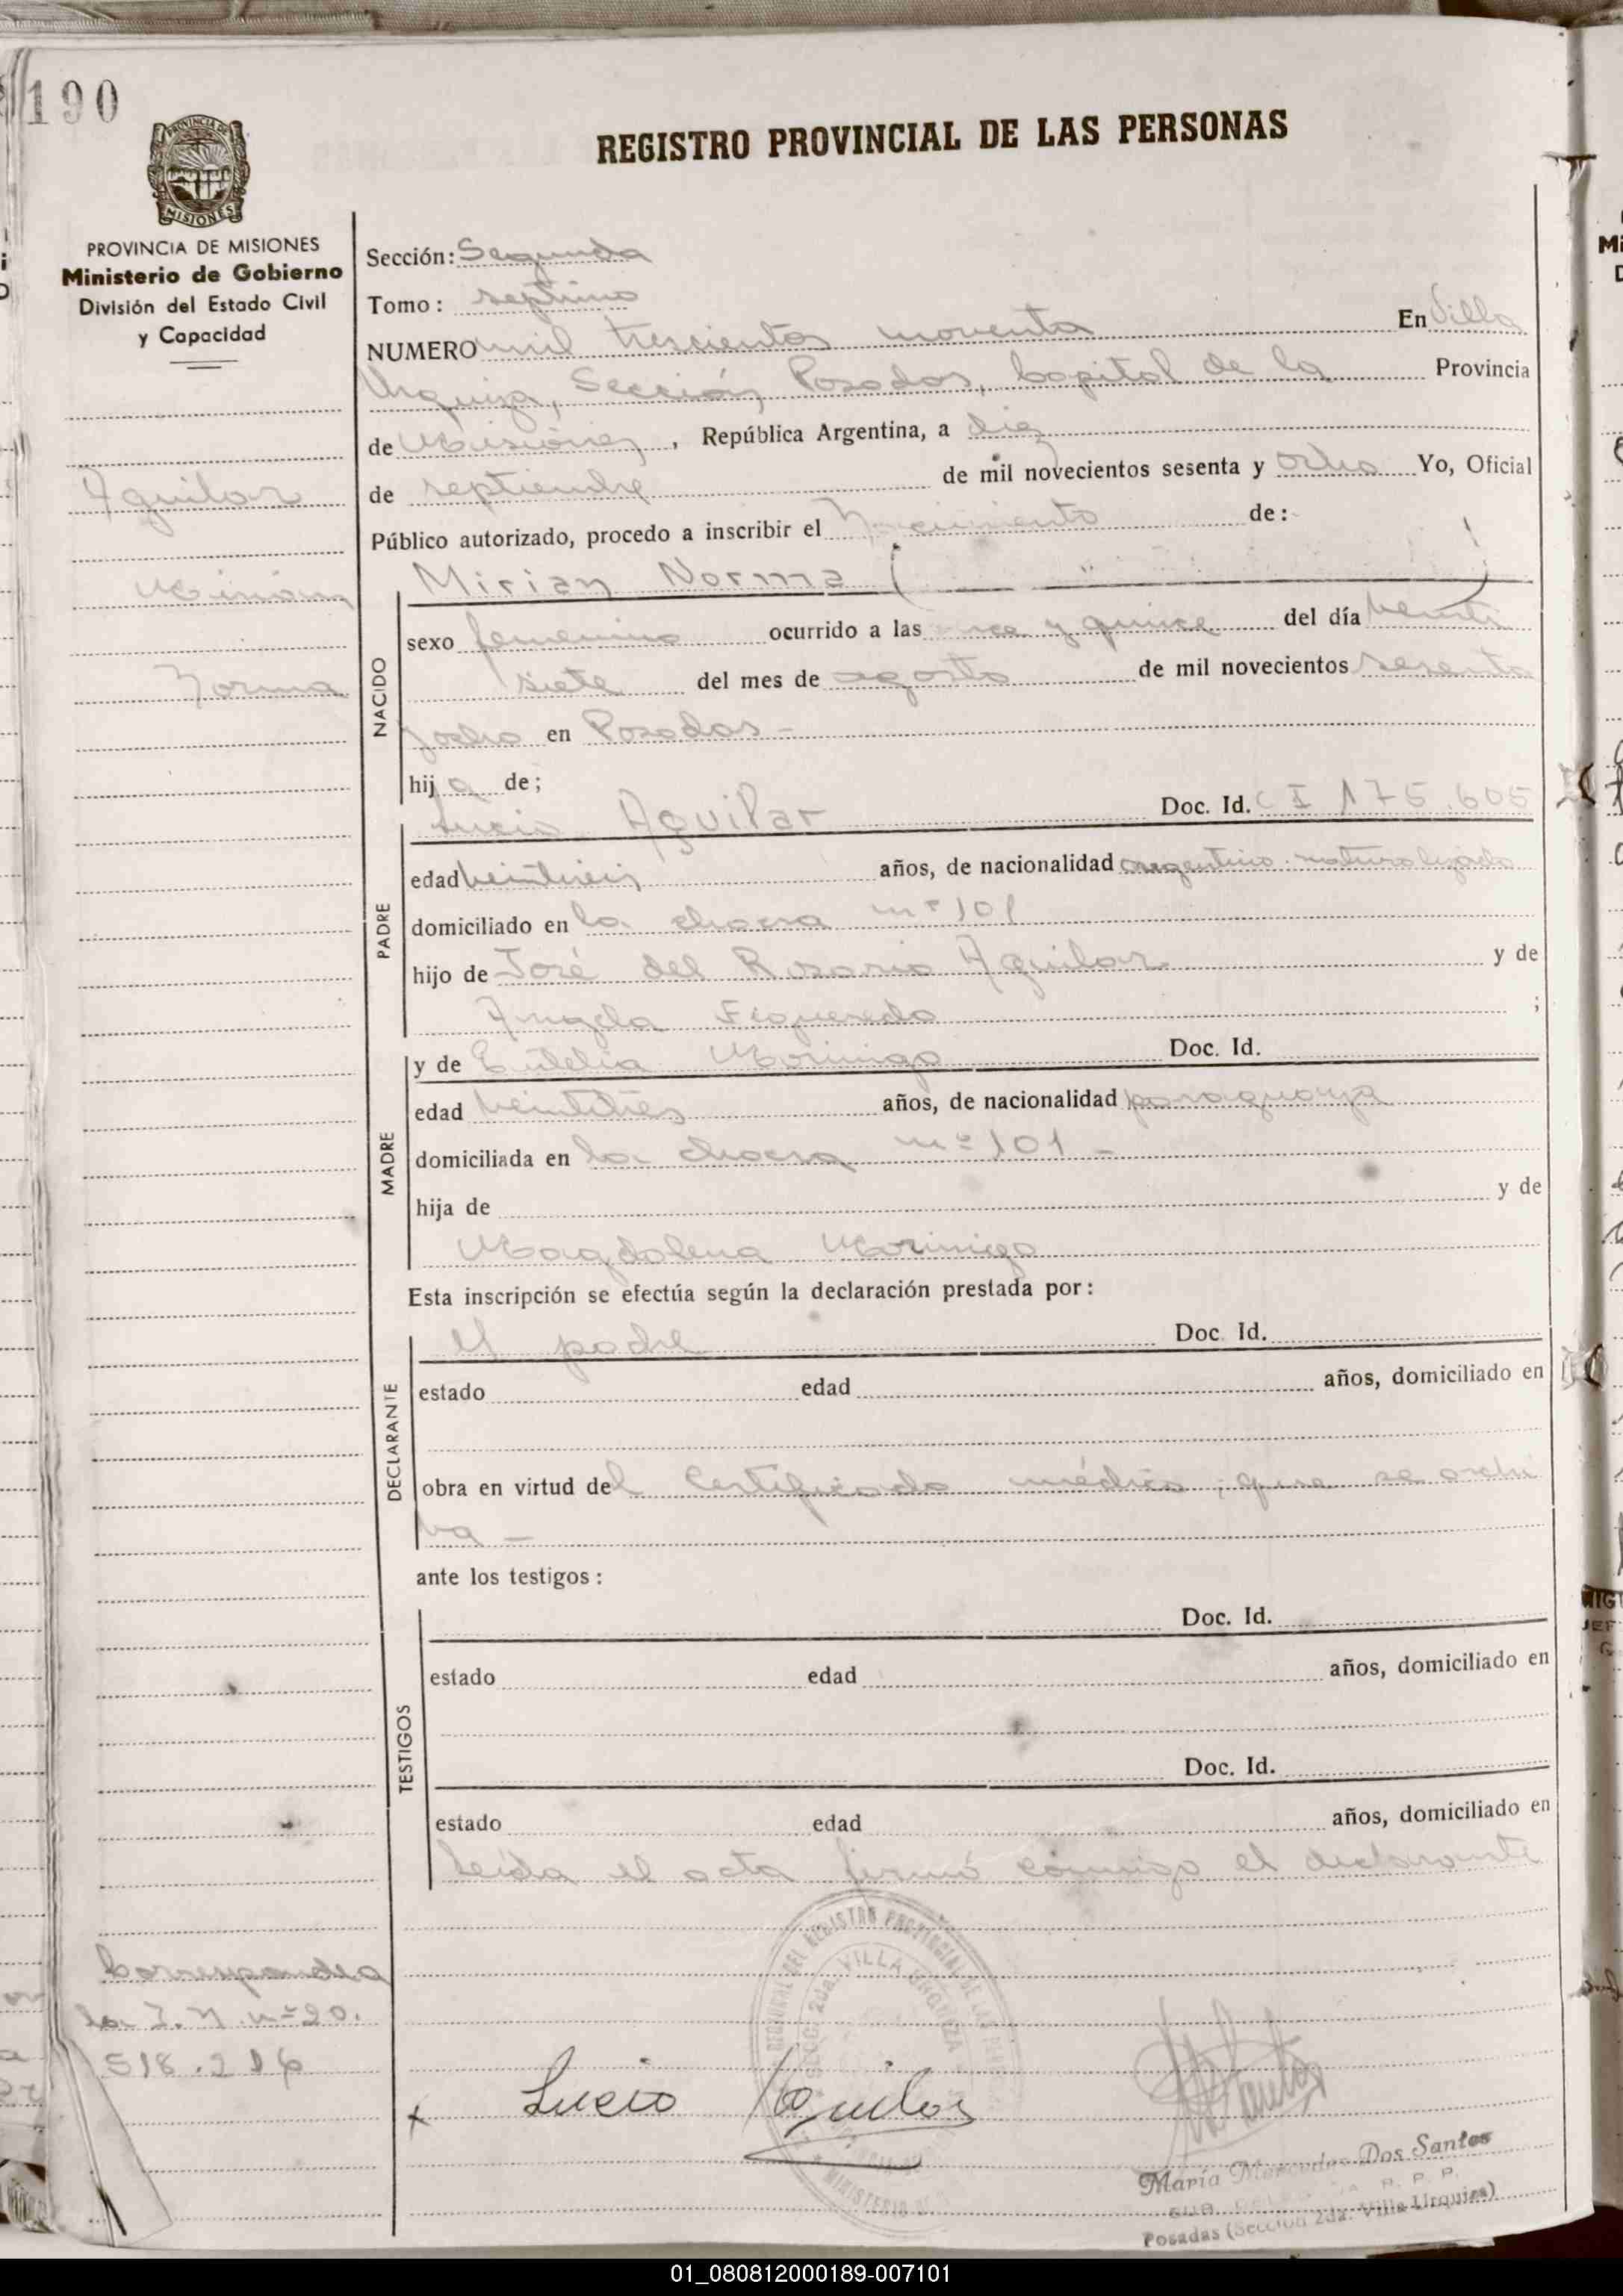 190
REGISTRO PROVINCIAL DE LAS PERSONAS
PROVINCIA DE
MISIONES
PROVINCIA DE MISIONES
Ministerio de Gobierno
División del Estado Civil
y Capacidad
Aguilar
Mirian
Norma
Sección: Segunda
Tomo: septimo
NUMERO mil trescientos noventa En Villa
Urquiza, Sección, Posadas, Capital de la Provincia
de Misiones, República Argentina, a diez
de septiembre de mil novecientos sesenta y ocho Yo, Oficial
Público autorizado, procedo a inscribir el Nacimiento de:
NACIDO
Mirian Norma
sexo femenino ocurrido a las y quince del día veinti
siete del mes de agosto de mil novecientos sesenta
y ocho en Posadas -
hija de;
PADRE
Lucio Aguilar Doc. Id. C I 175.605
edad años, de nacionalidad argentino naturalizado
domiciliado en la chacra nº 101
hijo de José del Rosario Aguilar y de
Angela Figueredo ;
MADRE
y de Eutelia Morinigo Doc. Id.
edad veintitrés años, de nacionalidad paraguaya
domiciliada en la chacra nº 101 -
hija de y de
Magdalena Morinigo
Esta inscripción se efectúa según la declaración prestada por:
DECLARANTE
el padre Doc. Id.
estado edad años, domiciliado en
obra en virtud del Certificado médico, que se archi
va -
ante los testigos:
TESTIGOS
Doc. Id.
estado edad años, domiciliado en
Doc. Id.
estado edad años, domiciliado en
Leida el acta firmó conmigo el declarante
Corresponde a
la I. N. nº 20.
518.216
SECC. 2da. VILLA URQUIZA
Lucio Aguilar
María Mercedes Dos Santos
Posadas (Sección 2da. Villa Urquiza)
01_080812000189-007101